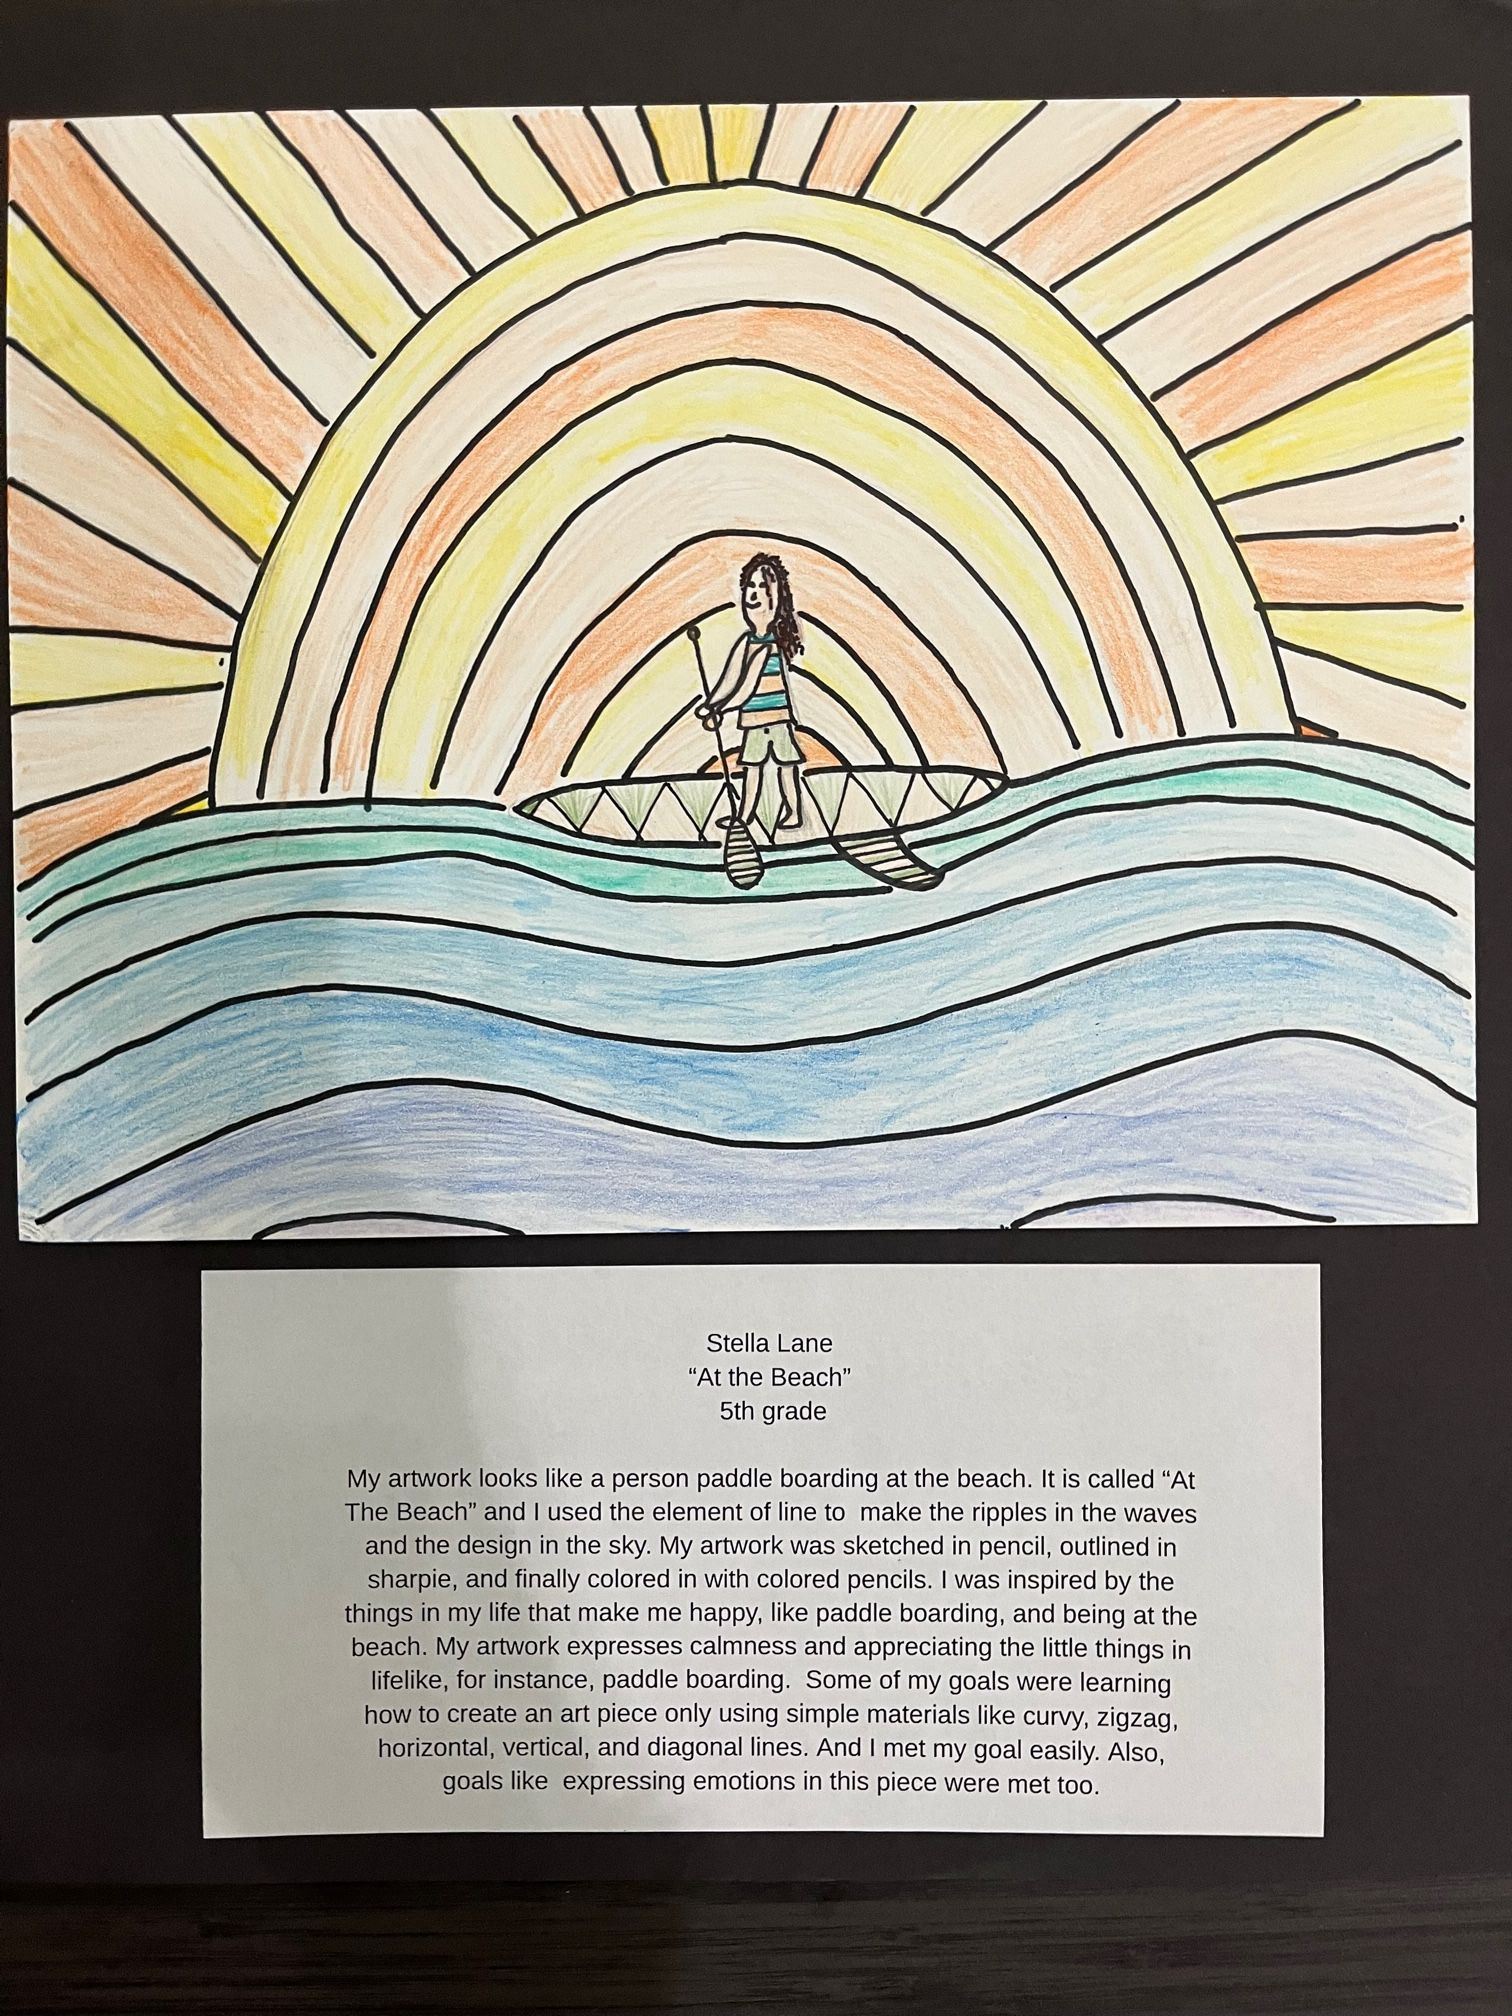 Stella Lane
“At the Beach”
5th grade
My artwork looks like a person paddle boarding at the beach. It is called “At
The Beach” and I used the element of line to  make the ripples in the waves
and the design in the sky. My artwork was sketched in pencil, outlined in
sharpie, and finally colored in with colored pencils. I was inspired by the
things in my life that make me happy, like paddle boarding, and being at the
beach. My artwork expresses calmness and appreciating the little things in
lifelike, for instance, paddle boarding.  Some of my goals were learning
how to create an art piece only using simple materials like curvy, zigzag,
horizontal, vertical, and diagonal lines. And I met my goal easily. Also,
goals like  expressing emotions in this piece were met too.